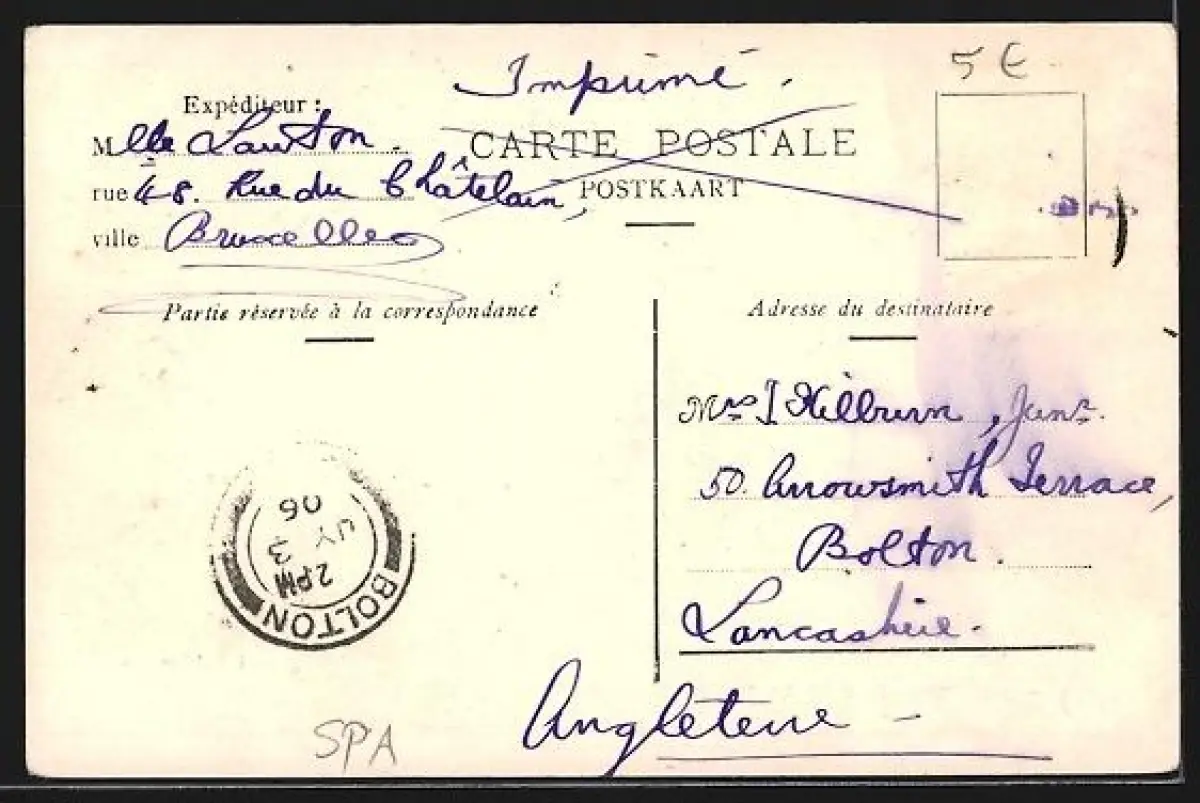 Imprimé.
5 €
Expéditeur :
Mlle Lawton.
CARTE POSTALE
rue 48. Rue du Châtelain,
POSTKAART
ville Bruxelles
Partie réservée à la correspondance
Adresse du destinataire
Mrs J Hilburn, Junr.
50. Arrowsmith Terrace,
Bolton.
Lancashire.
Angleterre -
BOLTON
2 PM
JY 3
06
SPA